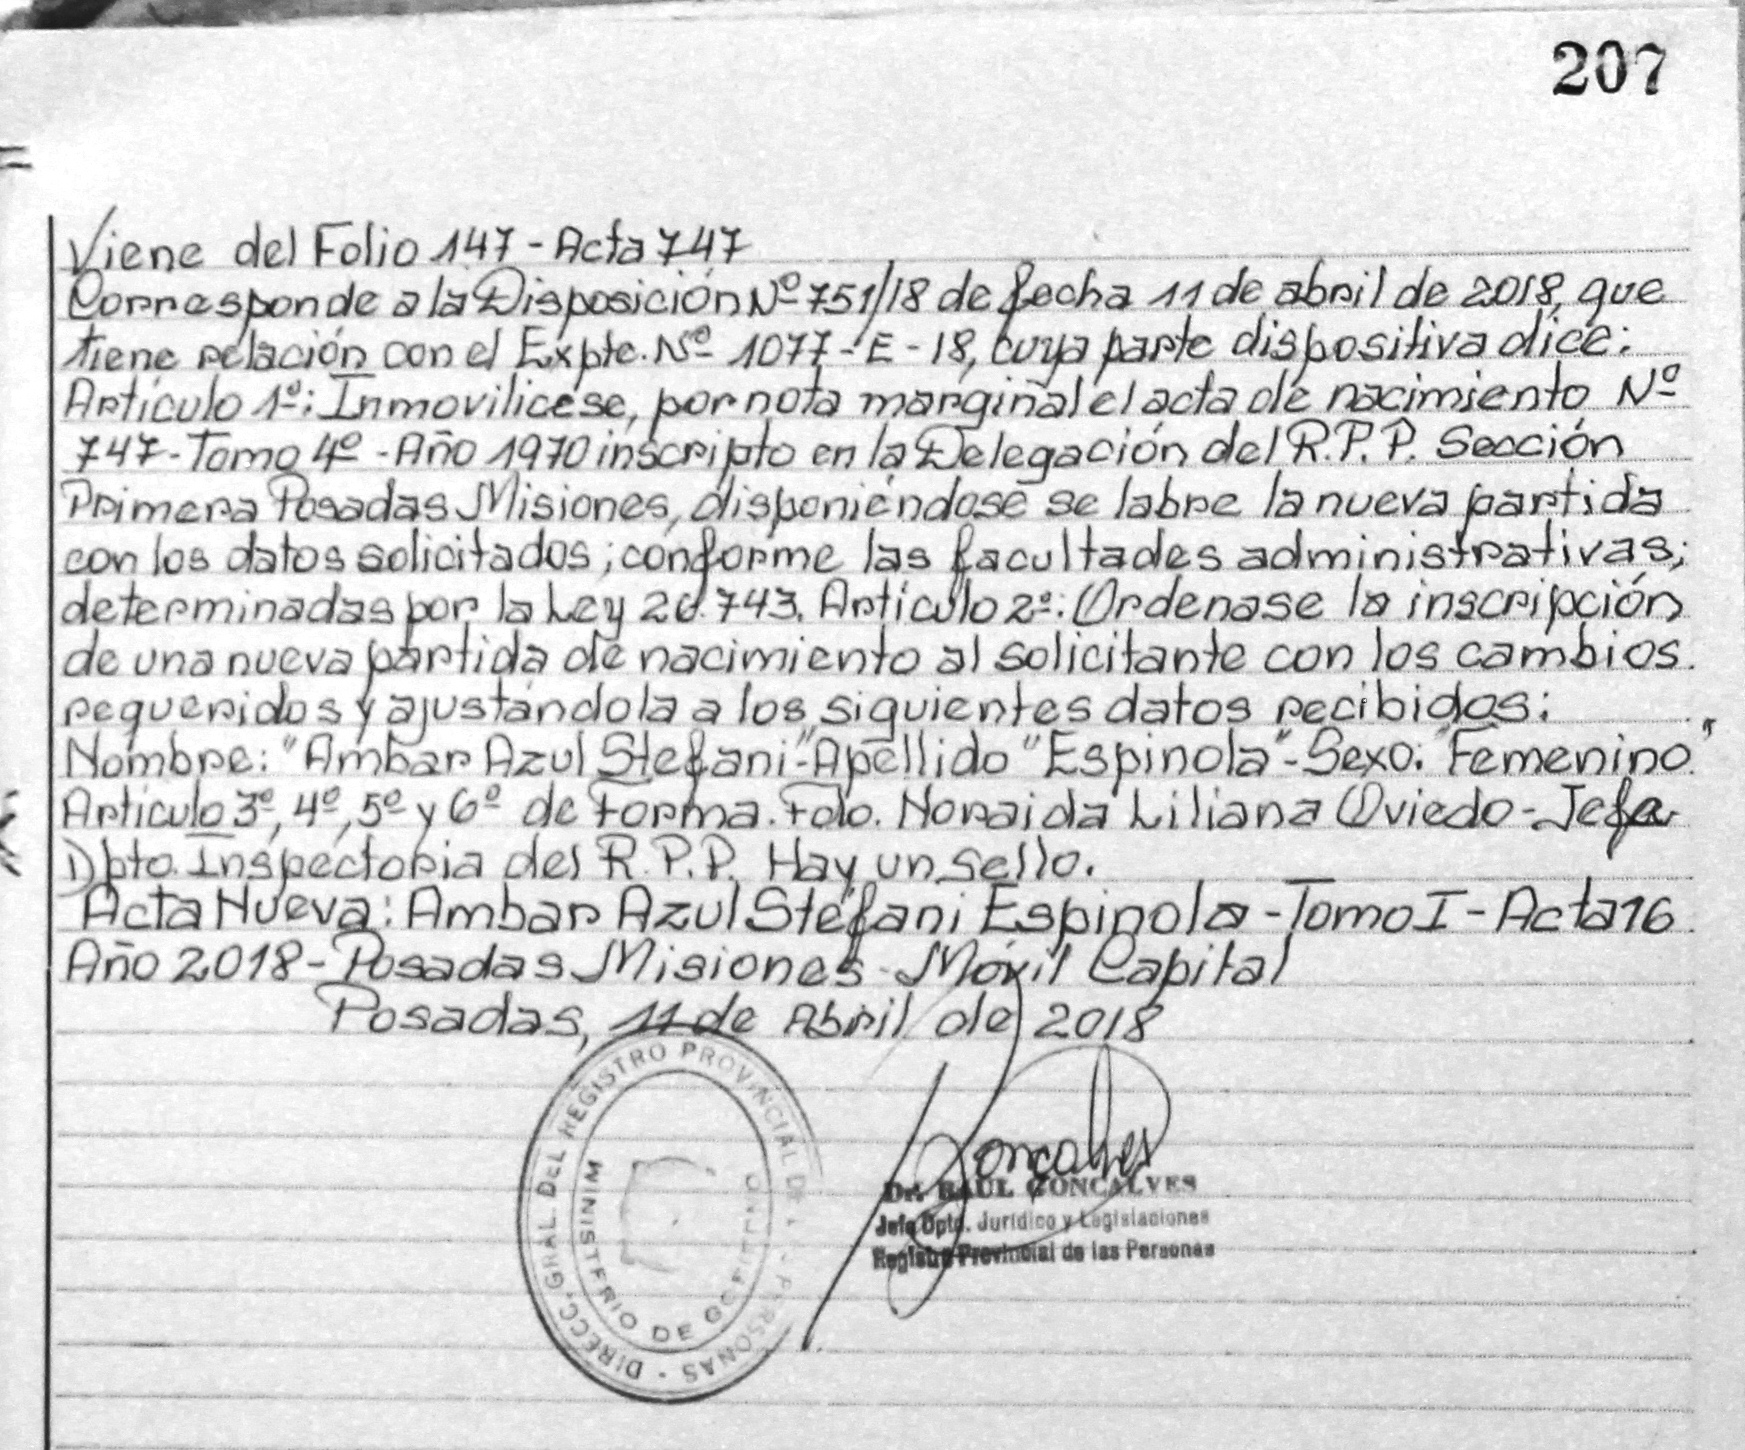 207
Viene del Folio 147 - Acta 747
Corresponde a la Disposición Nº 751/18 de fecha 11 de abril de 2018, que
tiene relación con el Expte. Nº 1077 - E - 18, cuya parte dispositiva dice:
Artículo 1º: Inmovilícese, por nota marginal el acta de nacimiento Nº
747 - Tomo 4º - Año 1970 inscripto en la Delegación del R.P.P. Sección
Primera Posadas Misiones, disponiéndose se labre la nueva partida
con los datos solicitados; conforme las facultades administrativas;
determinadas por la Ley 26.743. Artículo 2º: Ordenase la inscripción
de una nueva partida de nacimiento al solicitante con los cambios
requeridos y ajustándola a los siguientes datos recibidos:
Nombre: "Ambar Azul Stefani" - Apellido "Espinola" - Sexo: "Femenino"
Artículo 3º, 4º, 5º y 6º de Forma. Fdo. Noraida Liliana Oviedo - Jefa
Dpto. Inspectoria del R.P.P. Hay un sello.
Acta Nueva: Ambar Azul Stefani Espinola - Tomo I - Acta 16
Año 2018 - Posadas Misiones - Móvil Capital
Posadas, 11 de Abril de 2018
DIRECC. GRAL. DEL REGISTRO PROVINCIAL DE LAS PERSONAS -
MINISTERIO DE GOBIERNO
Goncalves
Dr. RAUL GONCALVES
Jefe Dpto. Jurídico y Legislaciones
Registro Provincial de las Personas